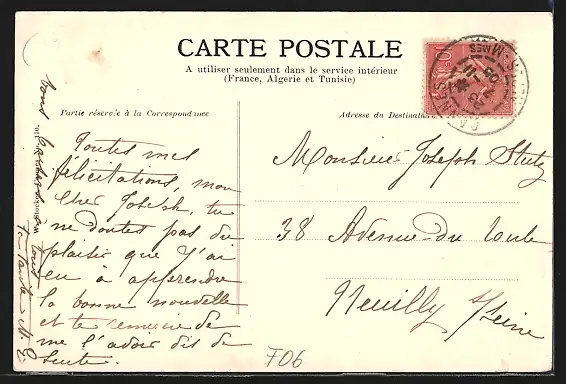 CARTE POSTALE
A utiliser seulement dans le service intérieur
(France, Algerie et Tunisie)
Partie réservée à la Correspondance
Adresse du Destinataire
Toutes mes
félicitations, mon
cher Joseph, tu
ne doutes pas du
plaisir que j'ai
eu à apprendre
la bonne nouvelle
et te remercie de
me l'avoir dit de
suite.
vous
tous
ta tante
Monsieur Joseph
38 Avenue du Roule
Neuilly s/Seine
CANNES
706